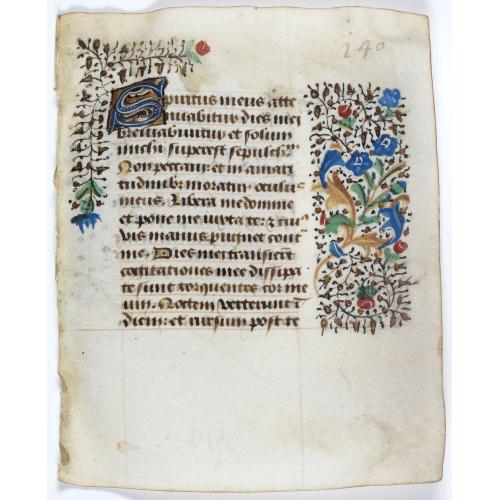 240
Spiritus meus atte
nuabitur dies mei
breviabuntur et solum
michi superest sepulchrũ
Non peccavi et in amari
tudinibꝰ moratur oculus
meus. Libera me domine
et pone me iuxta te: ⁊ cuiꝰ
vis manus pugnet cont̃
me. Dies mei transierũt
cogitationes mee dissipa
te sunt torquentes cor me
um. Noctem verterunt ĩ
diem: et rursum post te